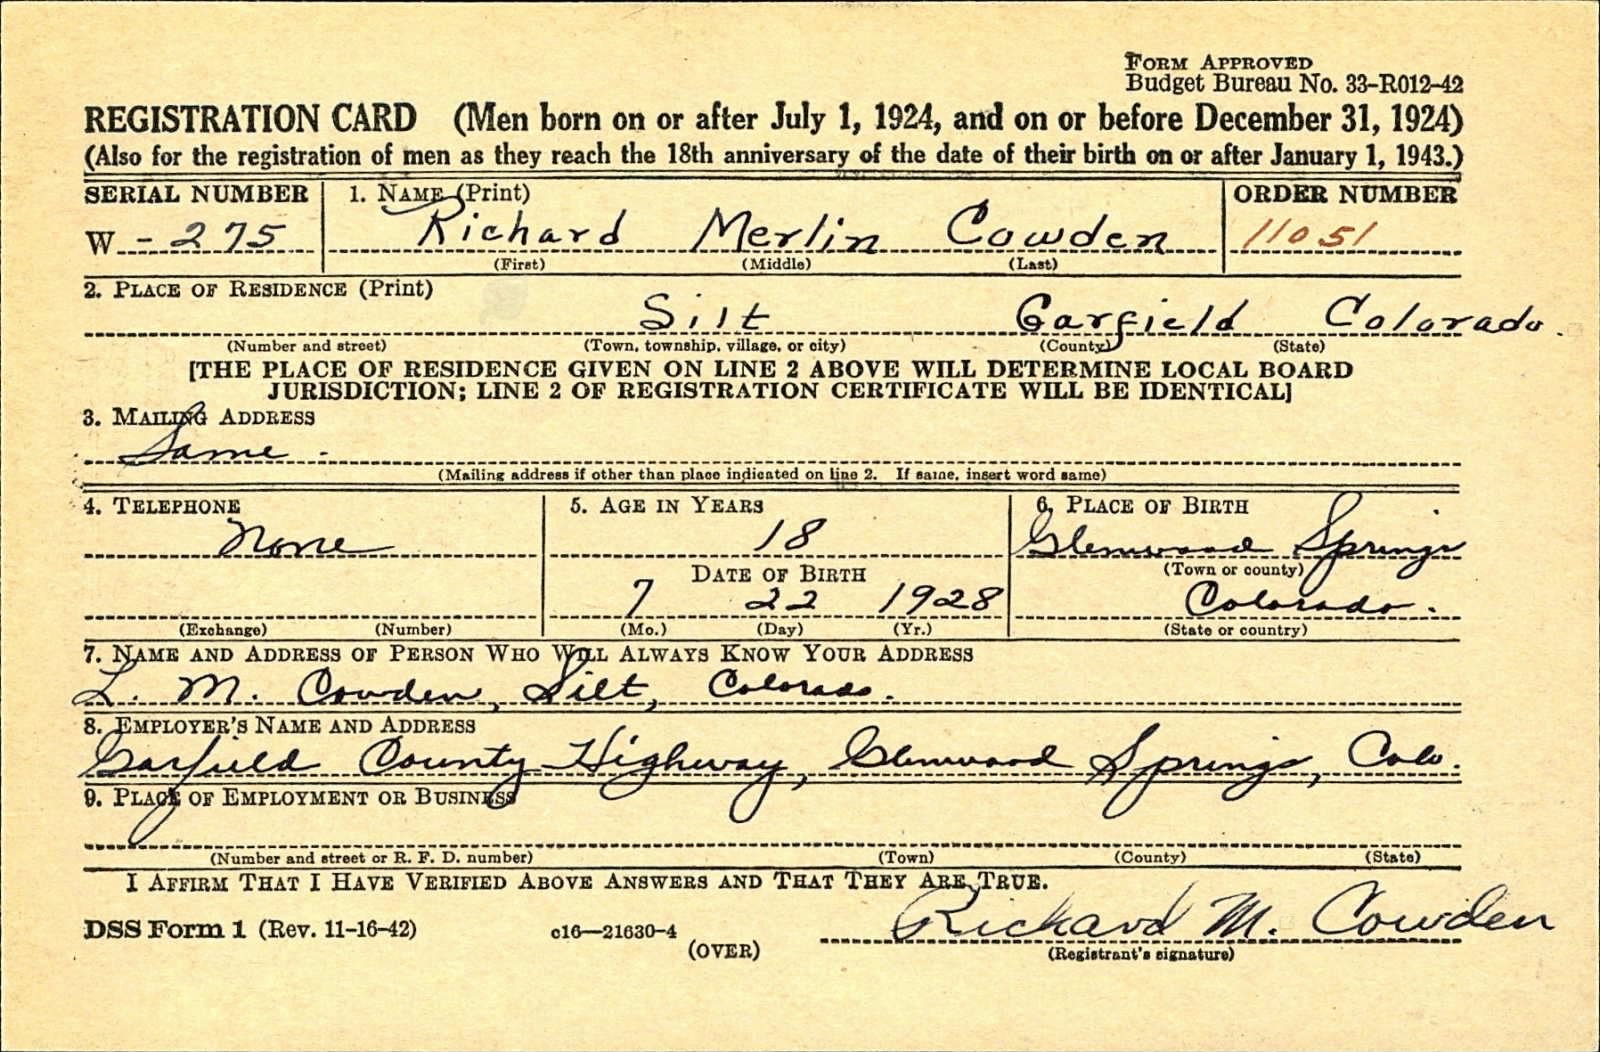 FORM APPROVED
Budget Bureau No. 33-R012-42
REGISTRATION CARD (Men born on or after July 1, 1924, and on or before December 31, 1924)
(Also for the registration of men as they reach the 18th anniversary of the date of their birth on or after January 1, 1943.)
SERIAL NUMBER 1. NAME (Print) ORDER NUMBER
W - 275 Richard Merlin Cowden 11051
(First) (Middle) (Last)
2. PLACE OF RESIDENCE (Print)
Silt Garfield Colorado.
(Number and street) (Town, township, village, or city) (County) (State)
[THE PLACE OF RESIDENCE GIVEN ON LINE 2 ABOVE WILL DETERMINE LOCAL BOARD
JURISDICTION; LINE 2 OF REGISTRATION CERTIFICATE WILL BE IDENTICAL]
3. MAILING ADDRESS
Same -
(Mailing address if other than place indicated on line 2. If same, insert word same)
4. TELEPHONE 5. AGE IN YEARS 6. PLACE OF BIRTH
None 18 Glenwood Springs
DATE OF BIRTH (Town or county)
7 22 1928 Colorado.
(Exchange) (Number) (Mo.) (Day) (Yr.) (State or country)
7. NAME AND ADDRESS OF PERSON WHO WILL ALWAYS KNOW YOUR ADDRESS
L. M. Cowden, Silt, Colorado.
8. EMPLOYER'S NAME AND ADDRESS
Garfield County Highway, Glenwood Springs, Colo.
9. PLACE OF EMPLOYMENT OR BUSINESS
(Number and street or R. F. D. number) (Town) (County) (State)
I AFFIRM THAT I HAVE VERIFIED ABOVE ANSWERS AND THAT THEY ARE TRUE.
DSS Form 1 (Rev. 11-16-42) c16—21630-4 Richard M. Cowden
(OVER) (Registrant's signature)